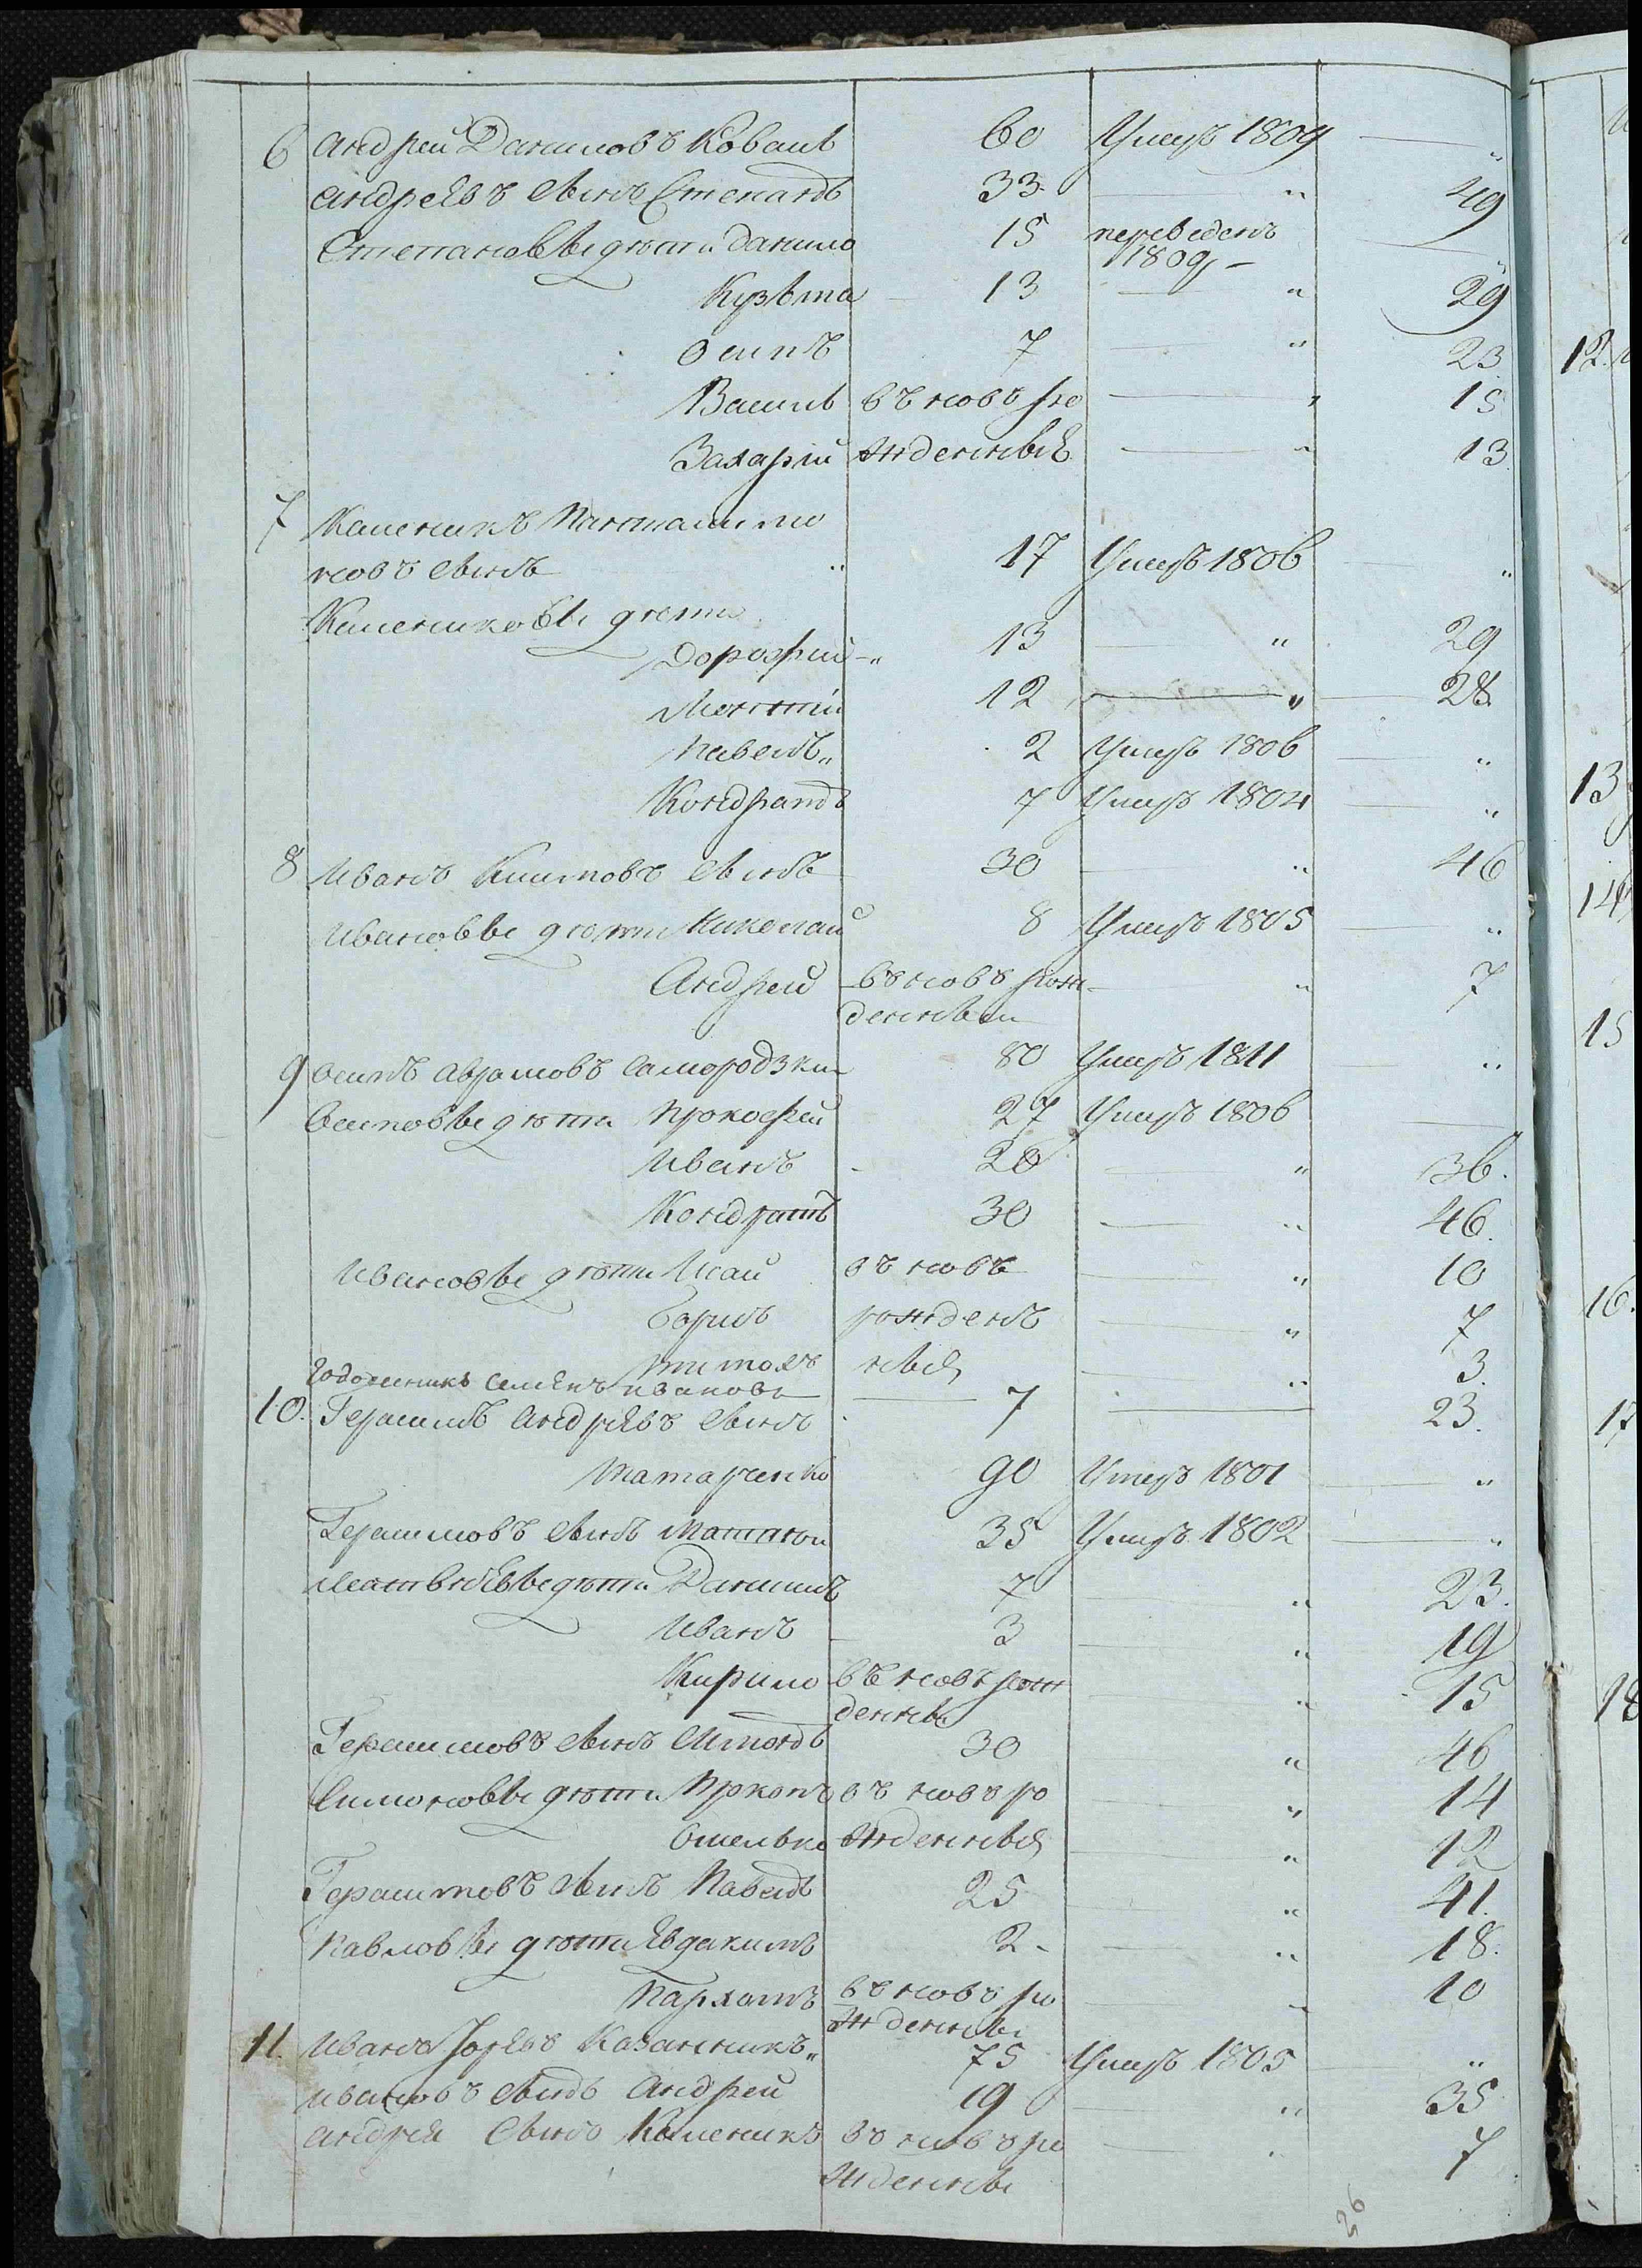 6 Андрей Даниловъ Коваль 60 Умеръ 1809 — „
Андреевъ сынъ Степанъ 33 — „ 49
Степановы дѣти Данило 15 переведенъ
1809 — „
Кузьма 13 — „ 29
Осипъ 7 — „ 23
Василь въ новъ ро — „ 15
Захарій жденные — „ 13
7 Каленикъ Пантелимо
новъ сынъ „ 17 Умеръ 1806 — „
Калениковы дѣти
Дорофей „ 13 — „ 29
12 — „ 28
Павелъ „ 2 Умеръ 1806 — „
Кондратъ 7 Умеръ 1804 — „
8 Иванъ Климовъ сынъ 30 — „ 46
Ивановы дѣти Николай 8 Умеръ 1805 — „
Андрей въ новъ рож — „ 7
денный
9 Осипъ Аврамовъ Самородзки 80 Умеръ 1811 — „
Осиповы дѣти Прокофей 27 Умеръ 1806 —
Иванъ — 20 — „ 36.
Кондратъ 30 — „ 46.
Ивановы дѣти Исай въ новъ — „ 10
Борисъ рожден — „ 7
ные — „ 3.
Годованикъ Семенъ Ивановъ — 7 — 23.
10. Герасимъ Андреевъ сынъ
Татарченко 90 Умеръ 1801 — „
Герасимовъ сынъ Матвѣй 35 Умеръ 1802 — „
Матвѣевы дѣти Данилъ 7 — „ 23.
Иванъ — 3 — „ 19
Кирило въ новъ рож — „ 15
денны
Герасимовъ сынъ Симонъ 30 — „ 46
Симоновы дѣти Прокопъ въ новъ ро — „ 14
Омелько жденные — „ 12
Герасимовъ сынъ Павелъ 25 — „ 41.
Павловы дѣти Евдакимъ 2 — „ 18.
Пархомъ въ новъ ро — „ 10
жденны
11. Иванъ Казанникъ „ 75 Умеръ 1805 „
Ивановъ сынъ Андрей 19 — „ 35
Андрея сынъ Каленикъ въ новъ ро — „ 7
жденны
26
12.
13
14
15
16.
17
18